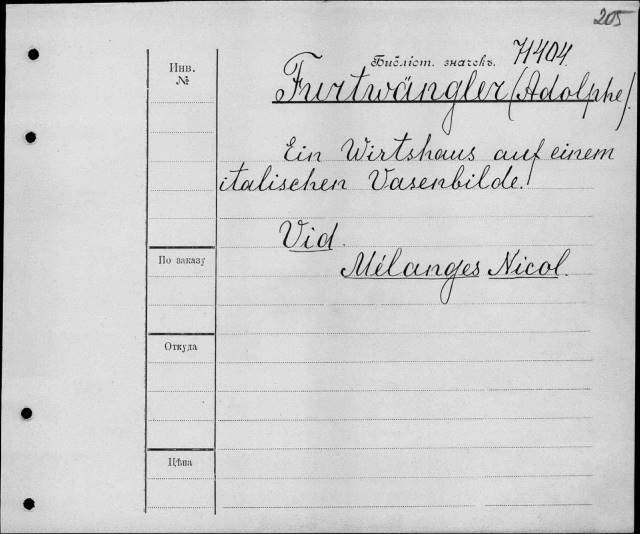 205
Инв.
№
Библіот. значекъ. 71404.
Furtwängler (Adolphe).
Ein Wirtshaus auf einem
italischen Vasenbilde.
Vid.
Mélanges Nicol.
По заказу
Откуда
Цѣна